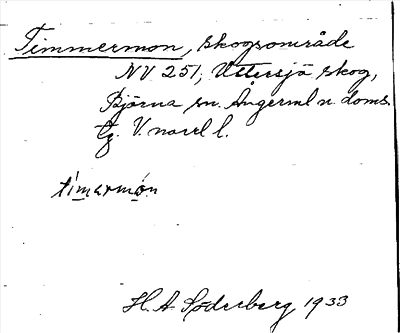 Timmermon, skogsområde
NV 251, Uttersjö skog,
Björna sn. Ångerml n. doms.
tg. V. norrl l.
tímarmón
H. A. Söderberg 1933